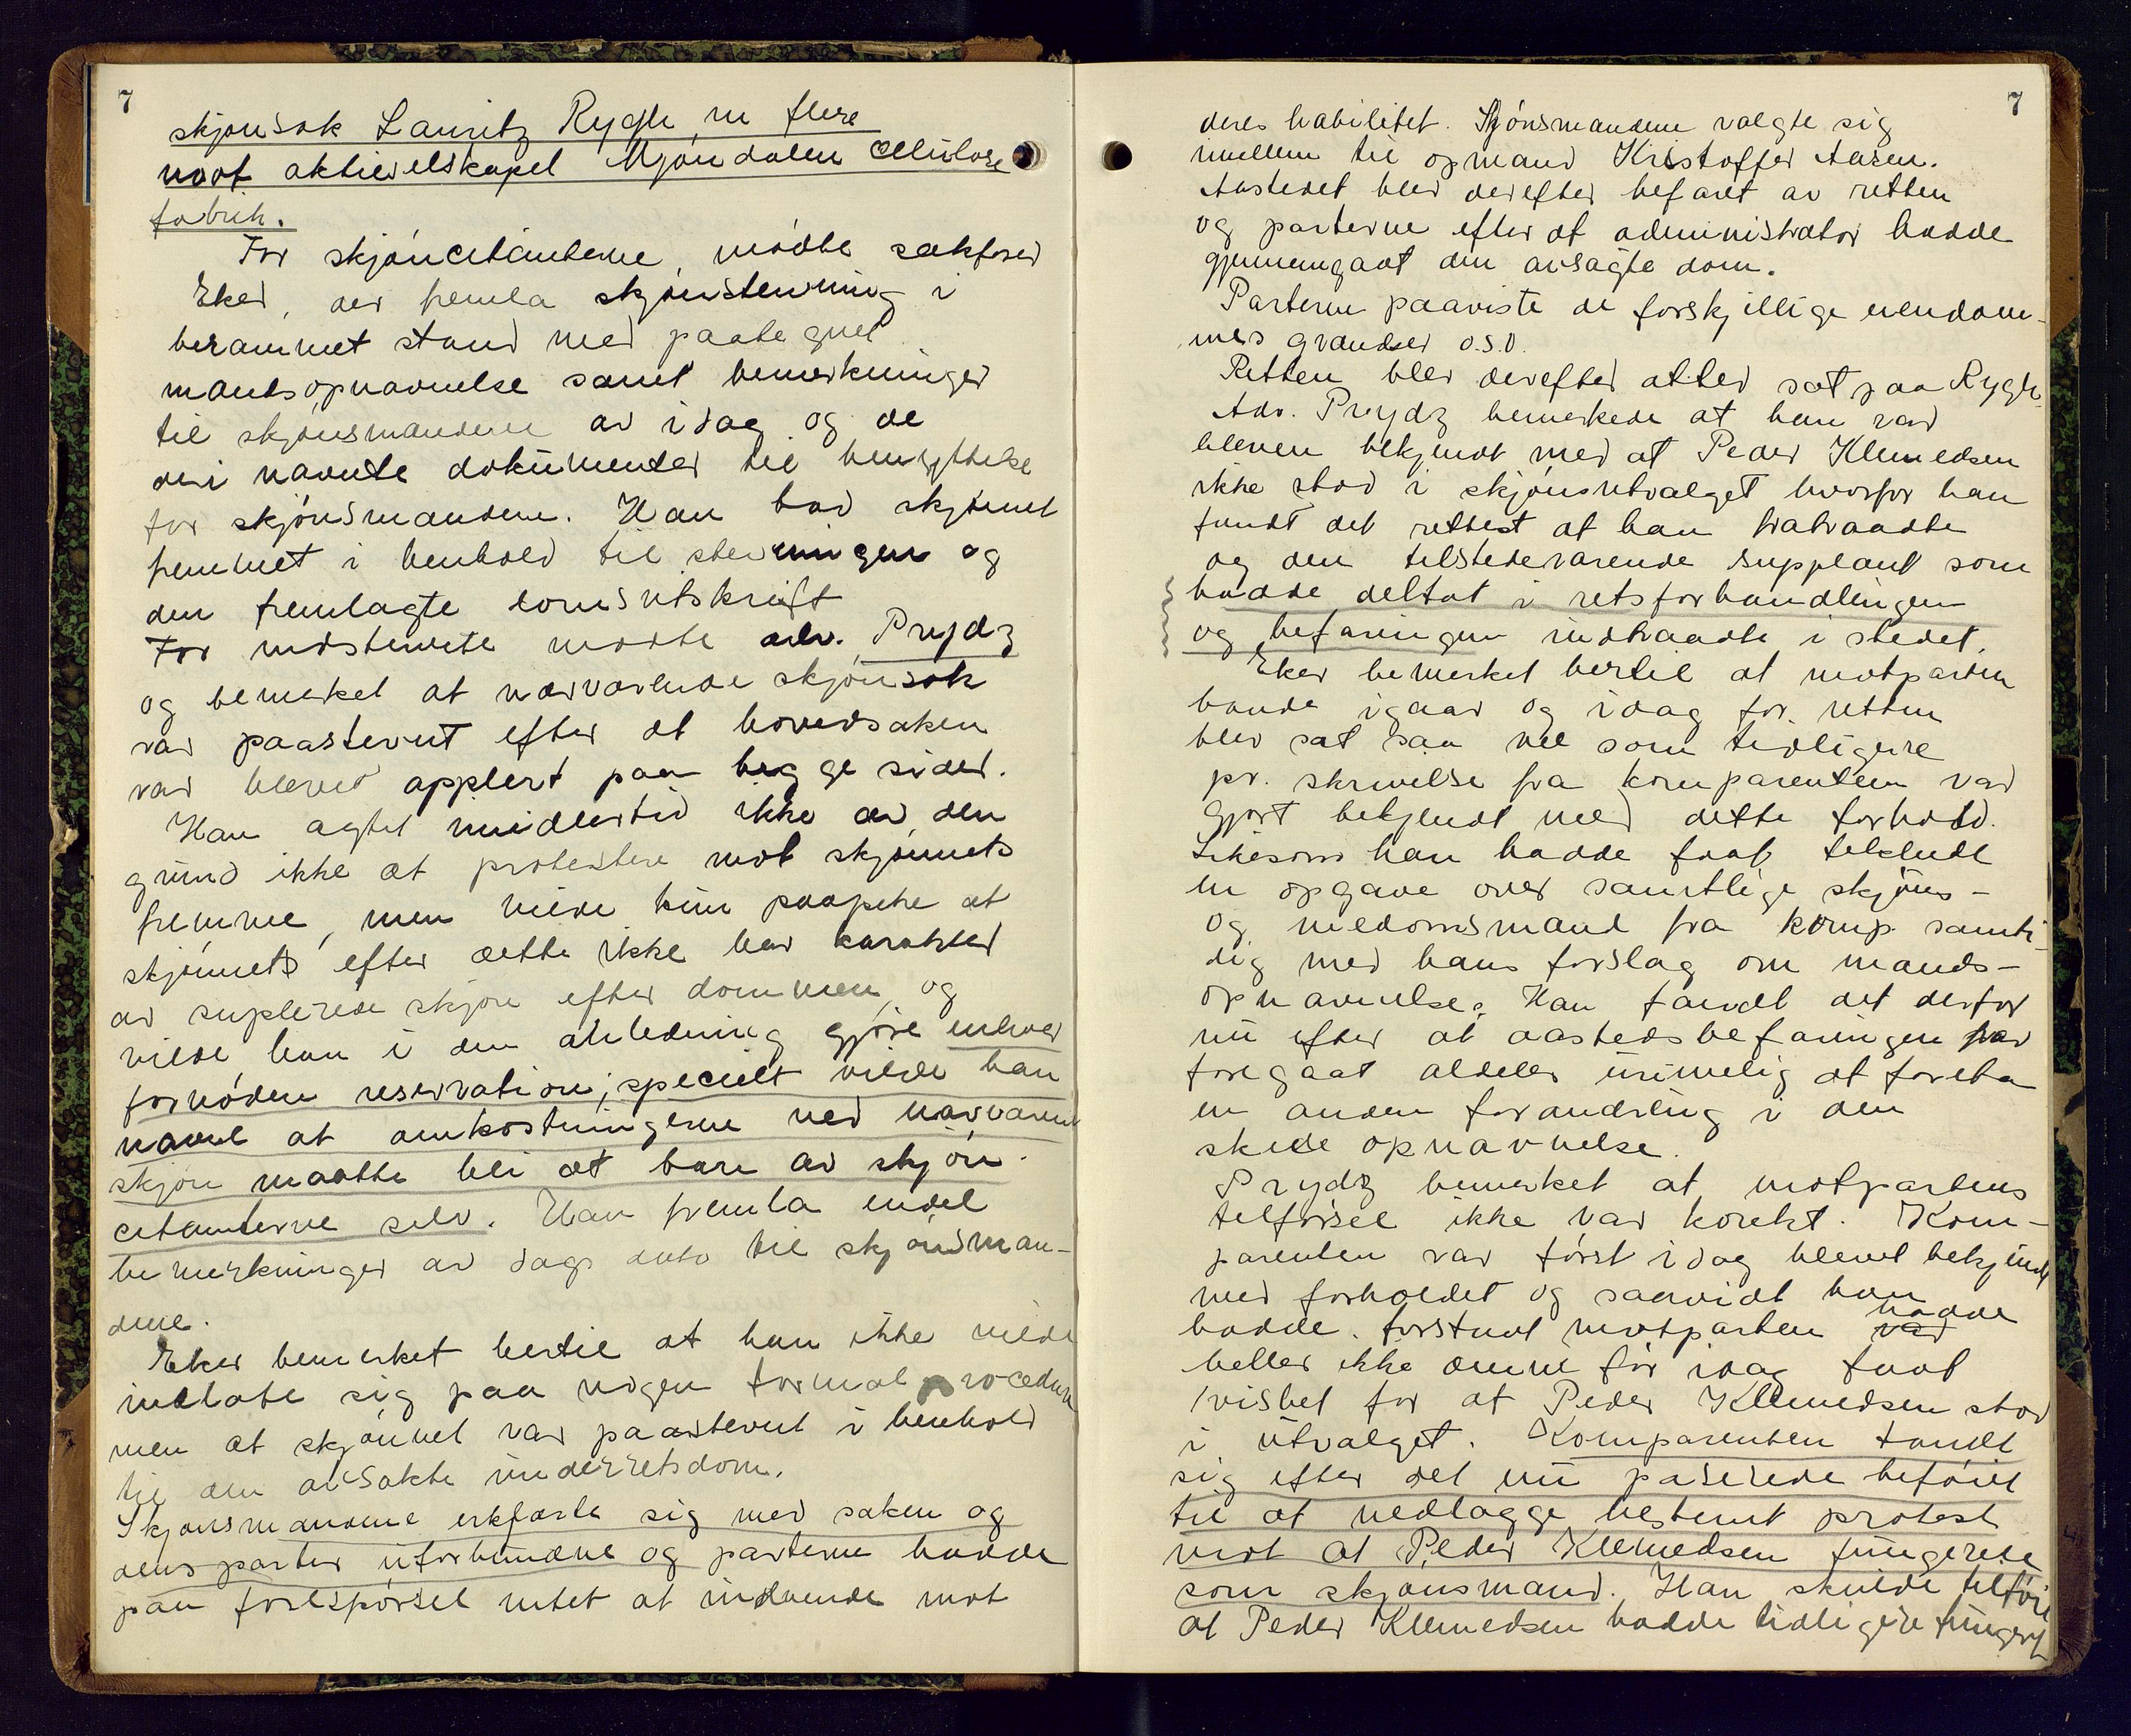 7
skjønsak Lauritz Rygh m flere
mot aktieselskapet Mjøndalen Cellulose
fabrik.
For skjøncitanterne, mødte sakfører
Eker, der fremla skjønstevning i
berammet stand med paategnet
mandsopnævnelse samt bemerkninger
til skjønsmændene av idag og de
deri nævnte dokumenter til benyttelse
for skjønsmændene. Han bad skjønnet
fremmet i henhold til stevningen og
den fremlagte domsutskrift
For indstevnte mødte adv. Prydz
og bemerket at nærværende skjønsak
var paastevnt efter at hovedsaken
var blevet applert paa begge sider.
Han agtet imidlertid ikke av den
grund ikke at protestere mot skjønnets
fremme, men vilde kun paapeke at
skjønnets efter dette ikke har karakter
av suplerede skjøn efter dommen, og
vilde han i den anledning gjøre enhver
fornøden reservation; specielt vilde han
nævne at omkostningerne ved nærværend
skjøn maatte bli at bære av skjøn-
citanterne selv. Han fremla endel
bemerkninger av dags dato til skjønsmæn-
dene.
Eker bemerket hertil at han ikke vilde
indlate sig paa nogen formal procedure
men at skjønnet var paastevnt i henhold
til den avsakte underretsdom.
Skjønsmændene erklærte sig med saken og
dens parter uforbundne og parterne hadde
paa forespørsel intet at indvende mot
7
deres habilitet. Skjønsmændene valgte sig
imellem til opmand Kristoffer Aasen.
Aastedet blev derefter befaret av retten
og parterne efter at administrator hadde
gjennemgaat den avsagte dom.
Parterne paaviste de forskjellige eiendom-
mes grændser o.s.v.
Retten blev derefter atter sat paa Rygh.
Adv. Prydz bemerkede at han var
bleven bekjendt med at Peder Klemedsen
ikke stod i skjønsutvalget hvorfor han
fandt det rettest at han fratraadte
og den tilstedeværende supplant som
hadde deltat i retsforhandlingen
og befaringen indtraadte i stedet.
Eker bemerket hertil at motparten
baade igaar og idag før retten
blev sat saa vel som tidligere
pr. skrivelse fra komparenten var
gjort bekjendt med dette forhold.
Likesom han hadde faat tilsendt
en opgave over samtlige skjøns-
og meddomsmænd fra komp. samti-
dig med hans forslag om mands-
opnævnelse. Han fandt det derfor
nu efter at aastedsbefaringen var
foregaat aldeles urimelig at foreta
en anden forandring i den
skede opnævnelse.
Prydz bemerket at motpartens
tilførsel ikke var korekt. Kom-
parenten var først idag blevet bekjendt
med forholdet og saavidt han
hadde forstaat motparten var hadde
heller ikke denne før idag faat
vishet for at Peder Klemedsen stod
i utvalget. Komparenten fandt
sig efter det nu paserede beføiet
til at nedlægge bestemt protest
mot at Peder Klemedsen fungerede
som skjønsmand. Han skulde tilføie
at Peder Klemedsen hadde tidligere fungert